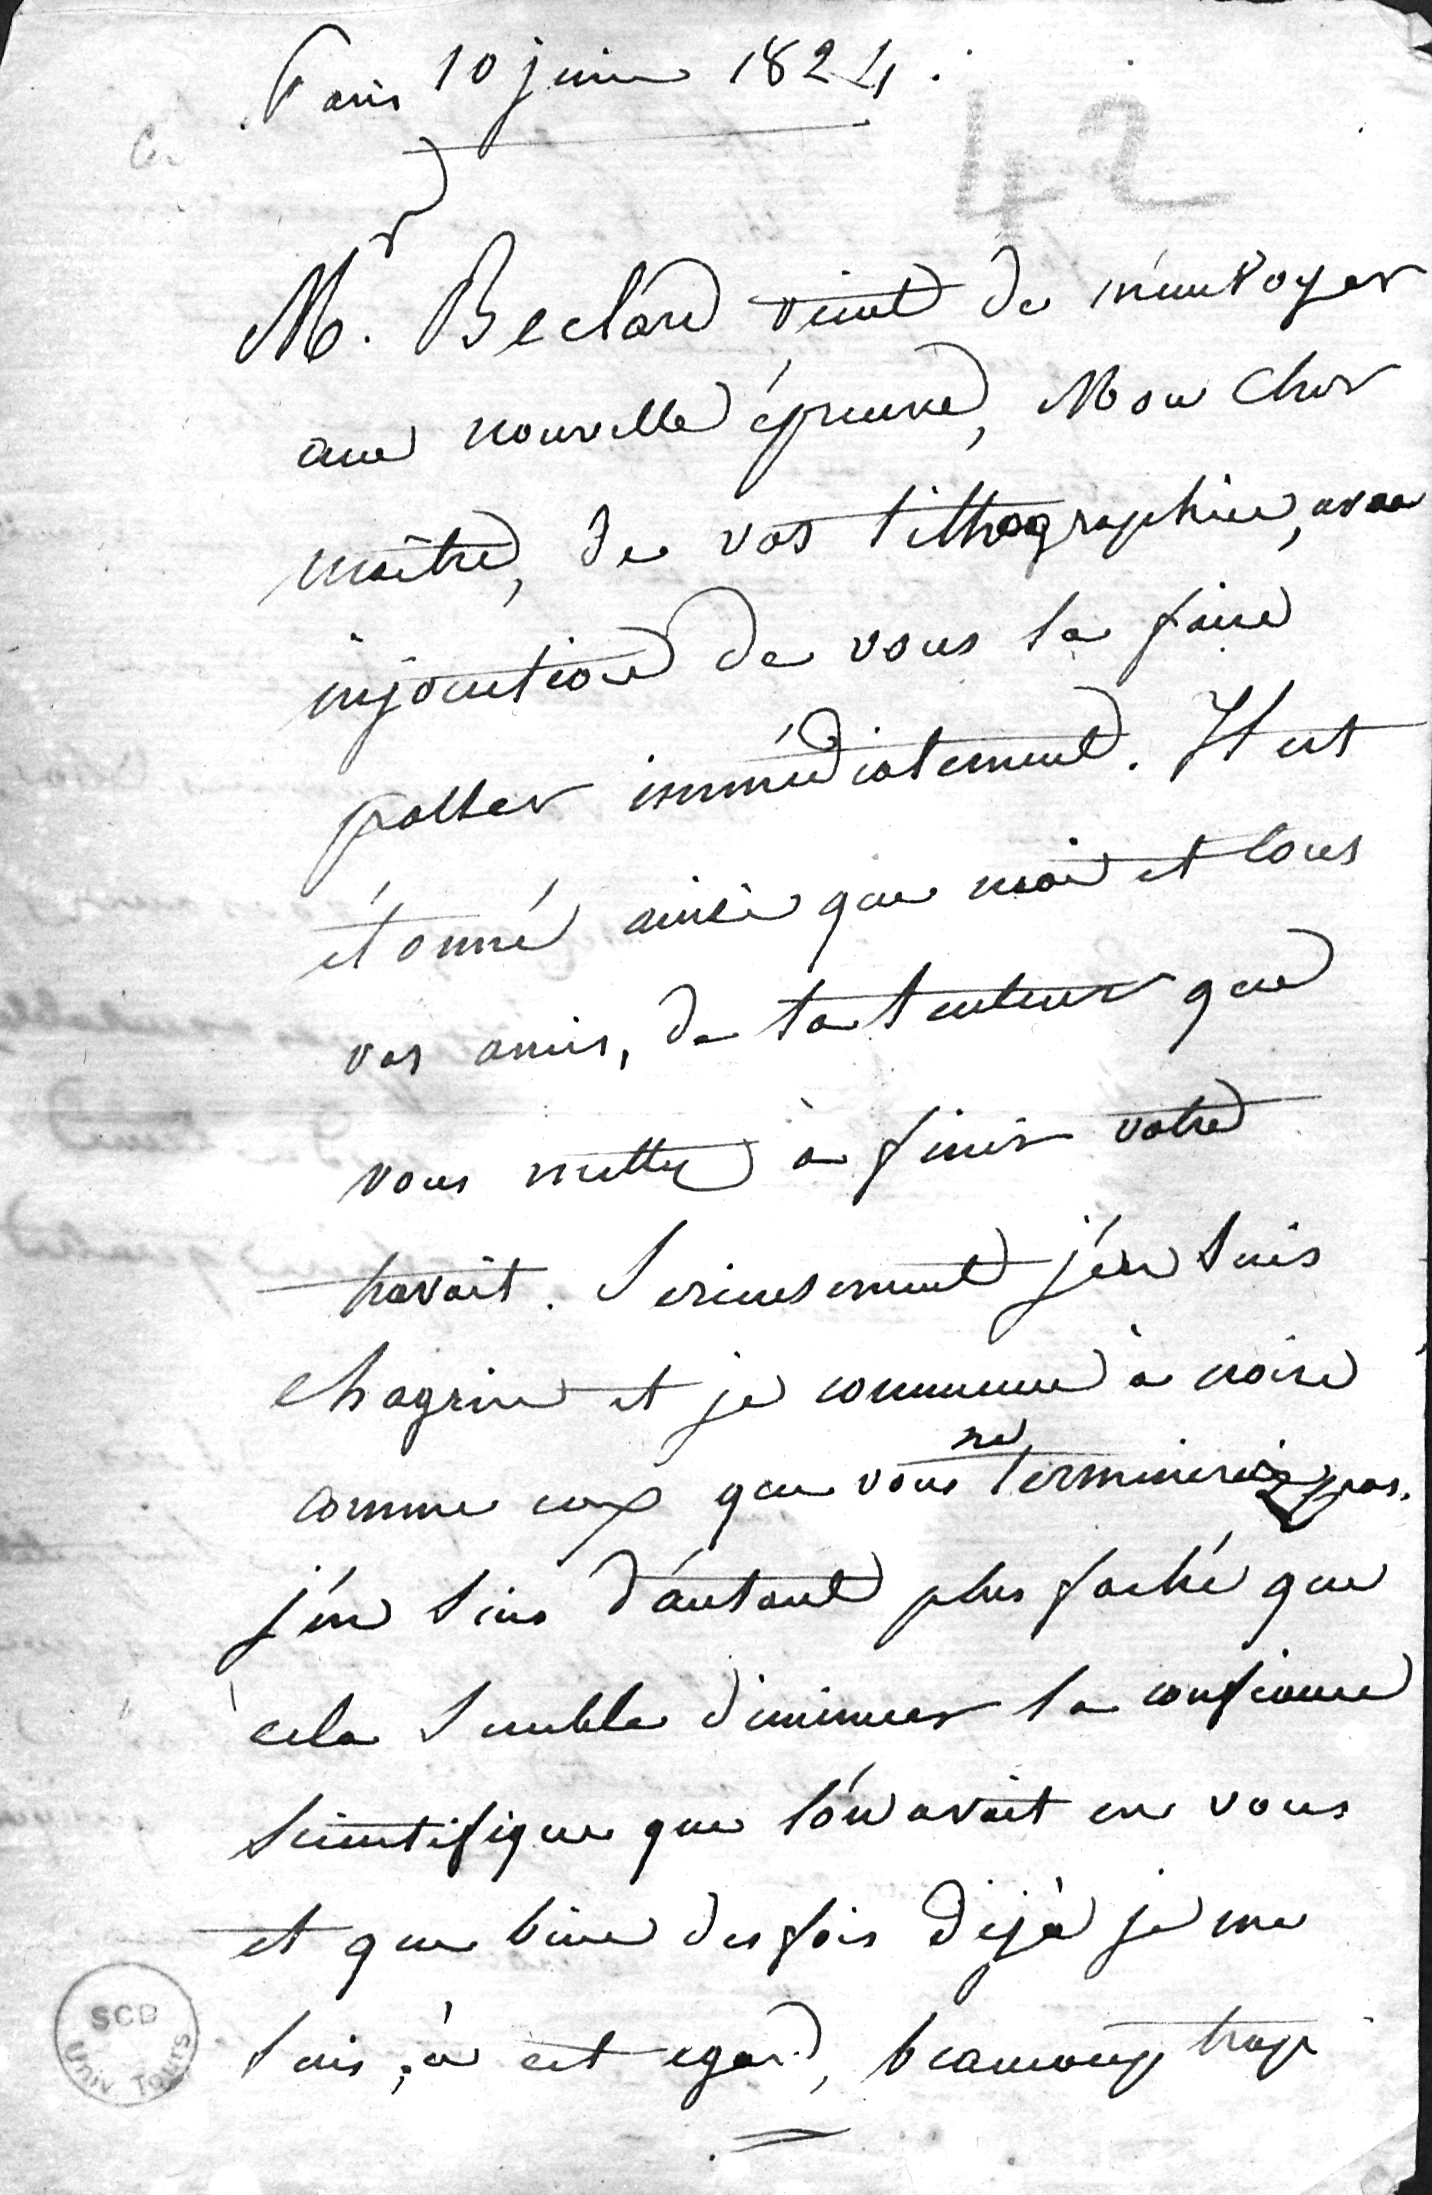 Paris 10 juin 1824.
42
Mr. Beclard vient de m'envoyer
une nouvelle épreuve, Mon cher
maître, de vos lithographies, avec
injonction de vous la faire
passer immédiatement. Il est
étonné ainsi que moi et tous
vos amis, de la lenteur que
vous mettez à finir votre
travail. Serieusement j'en suis
chagrin et je commence à croire
comme eux que vous ne terminerez pas.
j'en suis d'autant plus faché que
cela semble diminuer la confiance
scientifique que l'on avait en vous
et que bien des fois déjà je me
suis, à cet egard, beaucoup trop
SCD
Univ. Tours